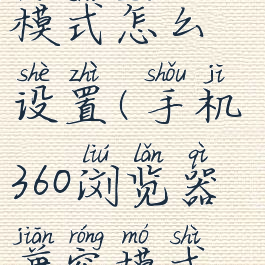 模式怎么
shè zhì shǒu jī
设置(手机
liú lǎn qì
360浏览器
jiān róng mó shì
兼容模式